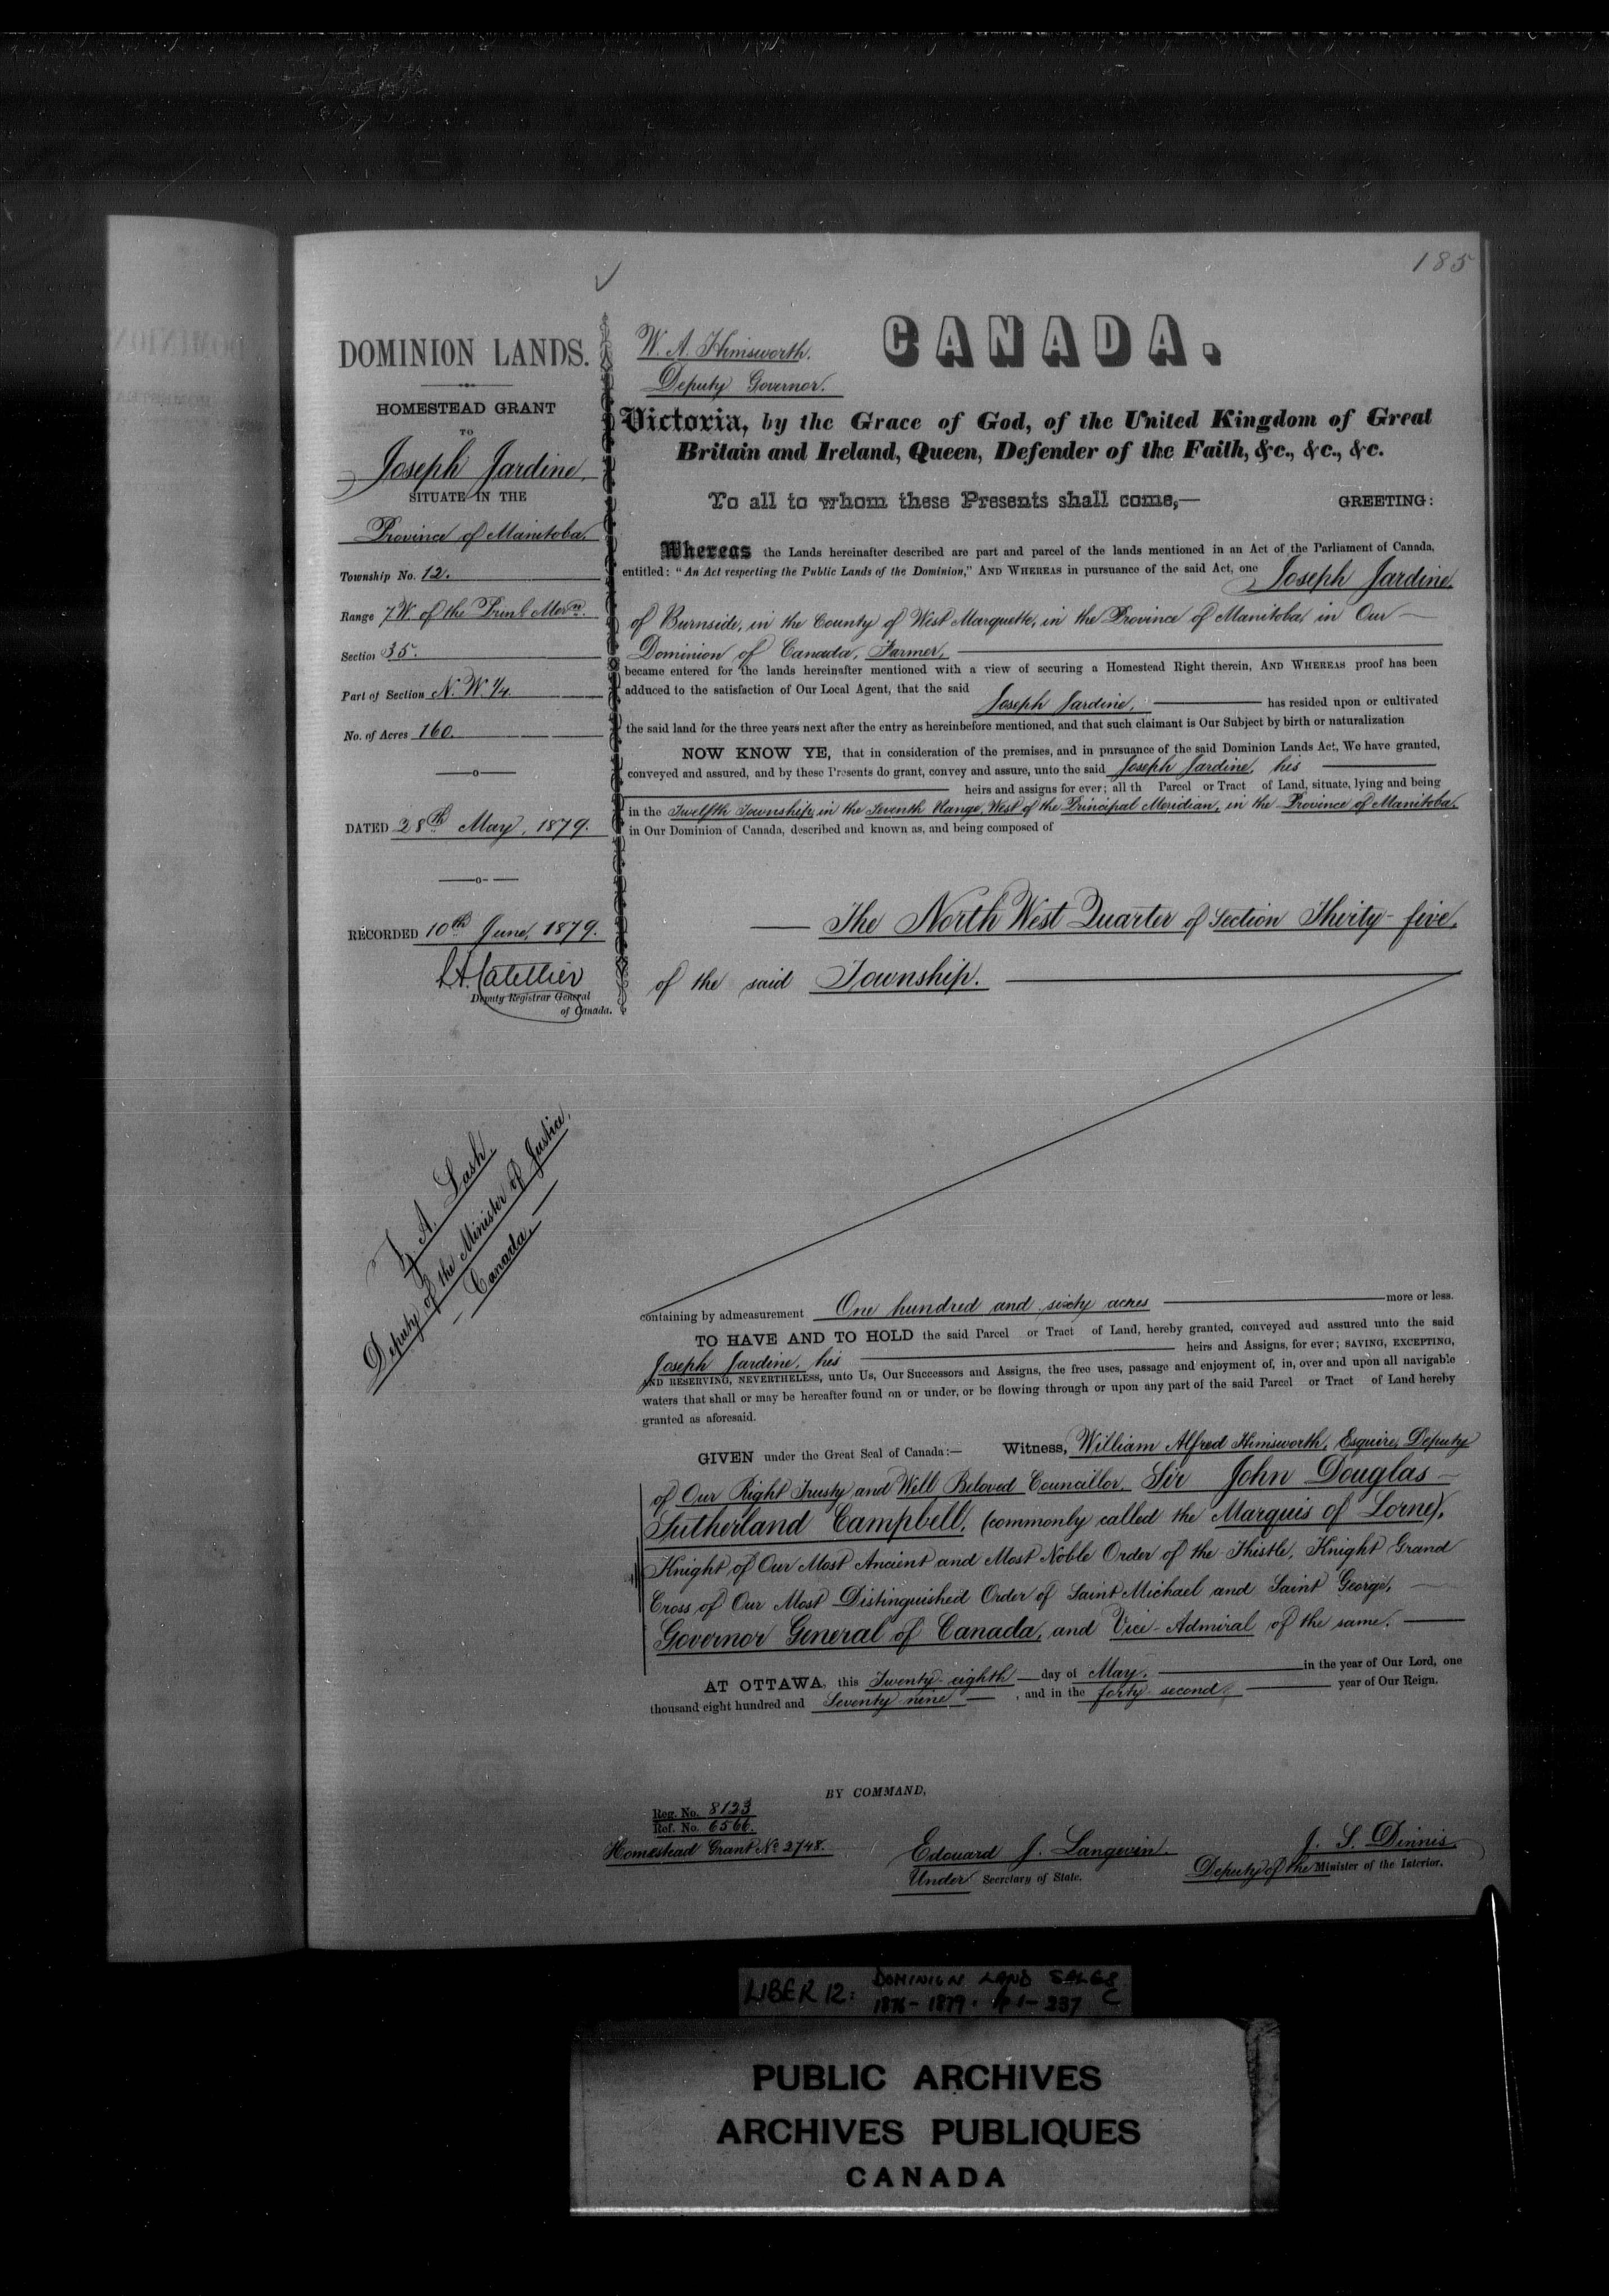 185
DOMINION LANDS.
HOMESTEAD GRANT
TO
Joseph Jardine,
SITUATE IN THE
Province of Manitoba.
Township No. 12.
Range 7 W. of the Prinl. Mern.
Section 35.
Part of Section N. W. 1/4.
No. of Acres 160.
DATED 28th May, 1879.
RECORDED 10th June, 1879.
L. A. Catellier
Deputy Registrar General
of Canada.
Z. A. Lash.
Deputy of the Minister of Justice,
Canada.
W. A. Himsworth.
Deputy Governor.
CANADA.
Victoria, by the Grace of God, of the United Kingdom of Great
Britain and Ireland, Queen, Defender of the Faith, &c., &c., &c.
To all to whom these Presents shall come,— GREETING:
Whereas the Lands hereinafter described are part and parcel of the lands mentioned in an Act of the Parliament of Canada,
entitled: "An Act respecting the Public Lands of the Dominion," AND WHEREAS in pursuance of the said Act, one Joseph Jardine,
of Burnside, in the County of West Marquette, in the Province of Manitoba in Our
Dominion of Canada, Farmer,
became entered for the lands hereinafter mentioned with a view of securing a Homestead Right therein, AND WHEREAS proof has been
adduced to the satisfaction of Our Local Agent, that the said
Joseph Jardine, has resided upon or cultivated
the said land for the three years next after the entry as hereinbefore mentioned, and that such claimant is Our Subject by birth or naturalization
NOW KNOW YE, that in consideration of the premises, and in pursuance of the said Dominion Lands Act, We have granted,
conveyed and assured, and by these Presents do grant, convey and assure, unto the said Joseph Jardine, his
heirs and assigns for ever; all th Parcel or Tract of Land, situate, lying and being
in the Twelfth Township, in the Seventh Range, West of the Principal Meridian, in the Province of Manitoba,
in Our Dominion of Canada, described and known as, and being composed of
The North West Quarter of Section Thirty-five,
of the said Township.
containing by admeasurement One hundred and sixty acres more or less.
TO HAVE AND TO HOLD the said Parcel or Tract of Land, hereby granted, conveyed and assured unto the said
Joseph Jardine, his heirs and Assigns, for ever; SAVING, EXCEPTING,
AND RESERVING, NEVERTHELESS, unto Us, Our Successors and Assigns, the free uses, passage and enjoyment of, in, over and upon all navigable
waters that shall or may be hereafter found on or under, or be flowing through or upon any part of the said Parcel or Tract of Land hereby
granted as aforesaid.
GIVEN under the Great Seal of Canada:— Witness, William Alfred Himsworth, Esquire, Deputy
of Our Right Trusty and Well Beloved Councillor Sir John Douglas
Sutherland Campbell, (commonly called the Marquis of Lorne),
Knight of Our Most Ancient and Most Noble Order of the Thistle, Knight Grand
Cross of Our Most Distinguished Order of Saint Michael and Saint George,
Governor General of Canada, and Vice-Admiral of the same.
AT OTTAWA, this Twenty-eighth day of May, in the year of Our Lord, one
thousand eight hundred and Seventy-nine, and in the forty-second year of Our Reign.
BY COMMAND,
Reg. No. 8123
Ref. No. 6566.
Homestead Grant No 2748.
Edouard J. Langevin.
Under Secretary of State.
J. S. Dennis.
Deputy of the Minister of the Interior.
LIBER 12: DOMINION LAND SALES
1876-1879. pp 1-237 C
PUBLIC ARCHIVES
ARCHIVES PUBLIQUES
CANADA